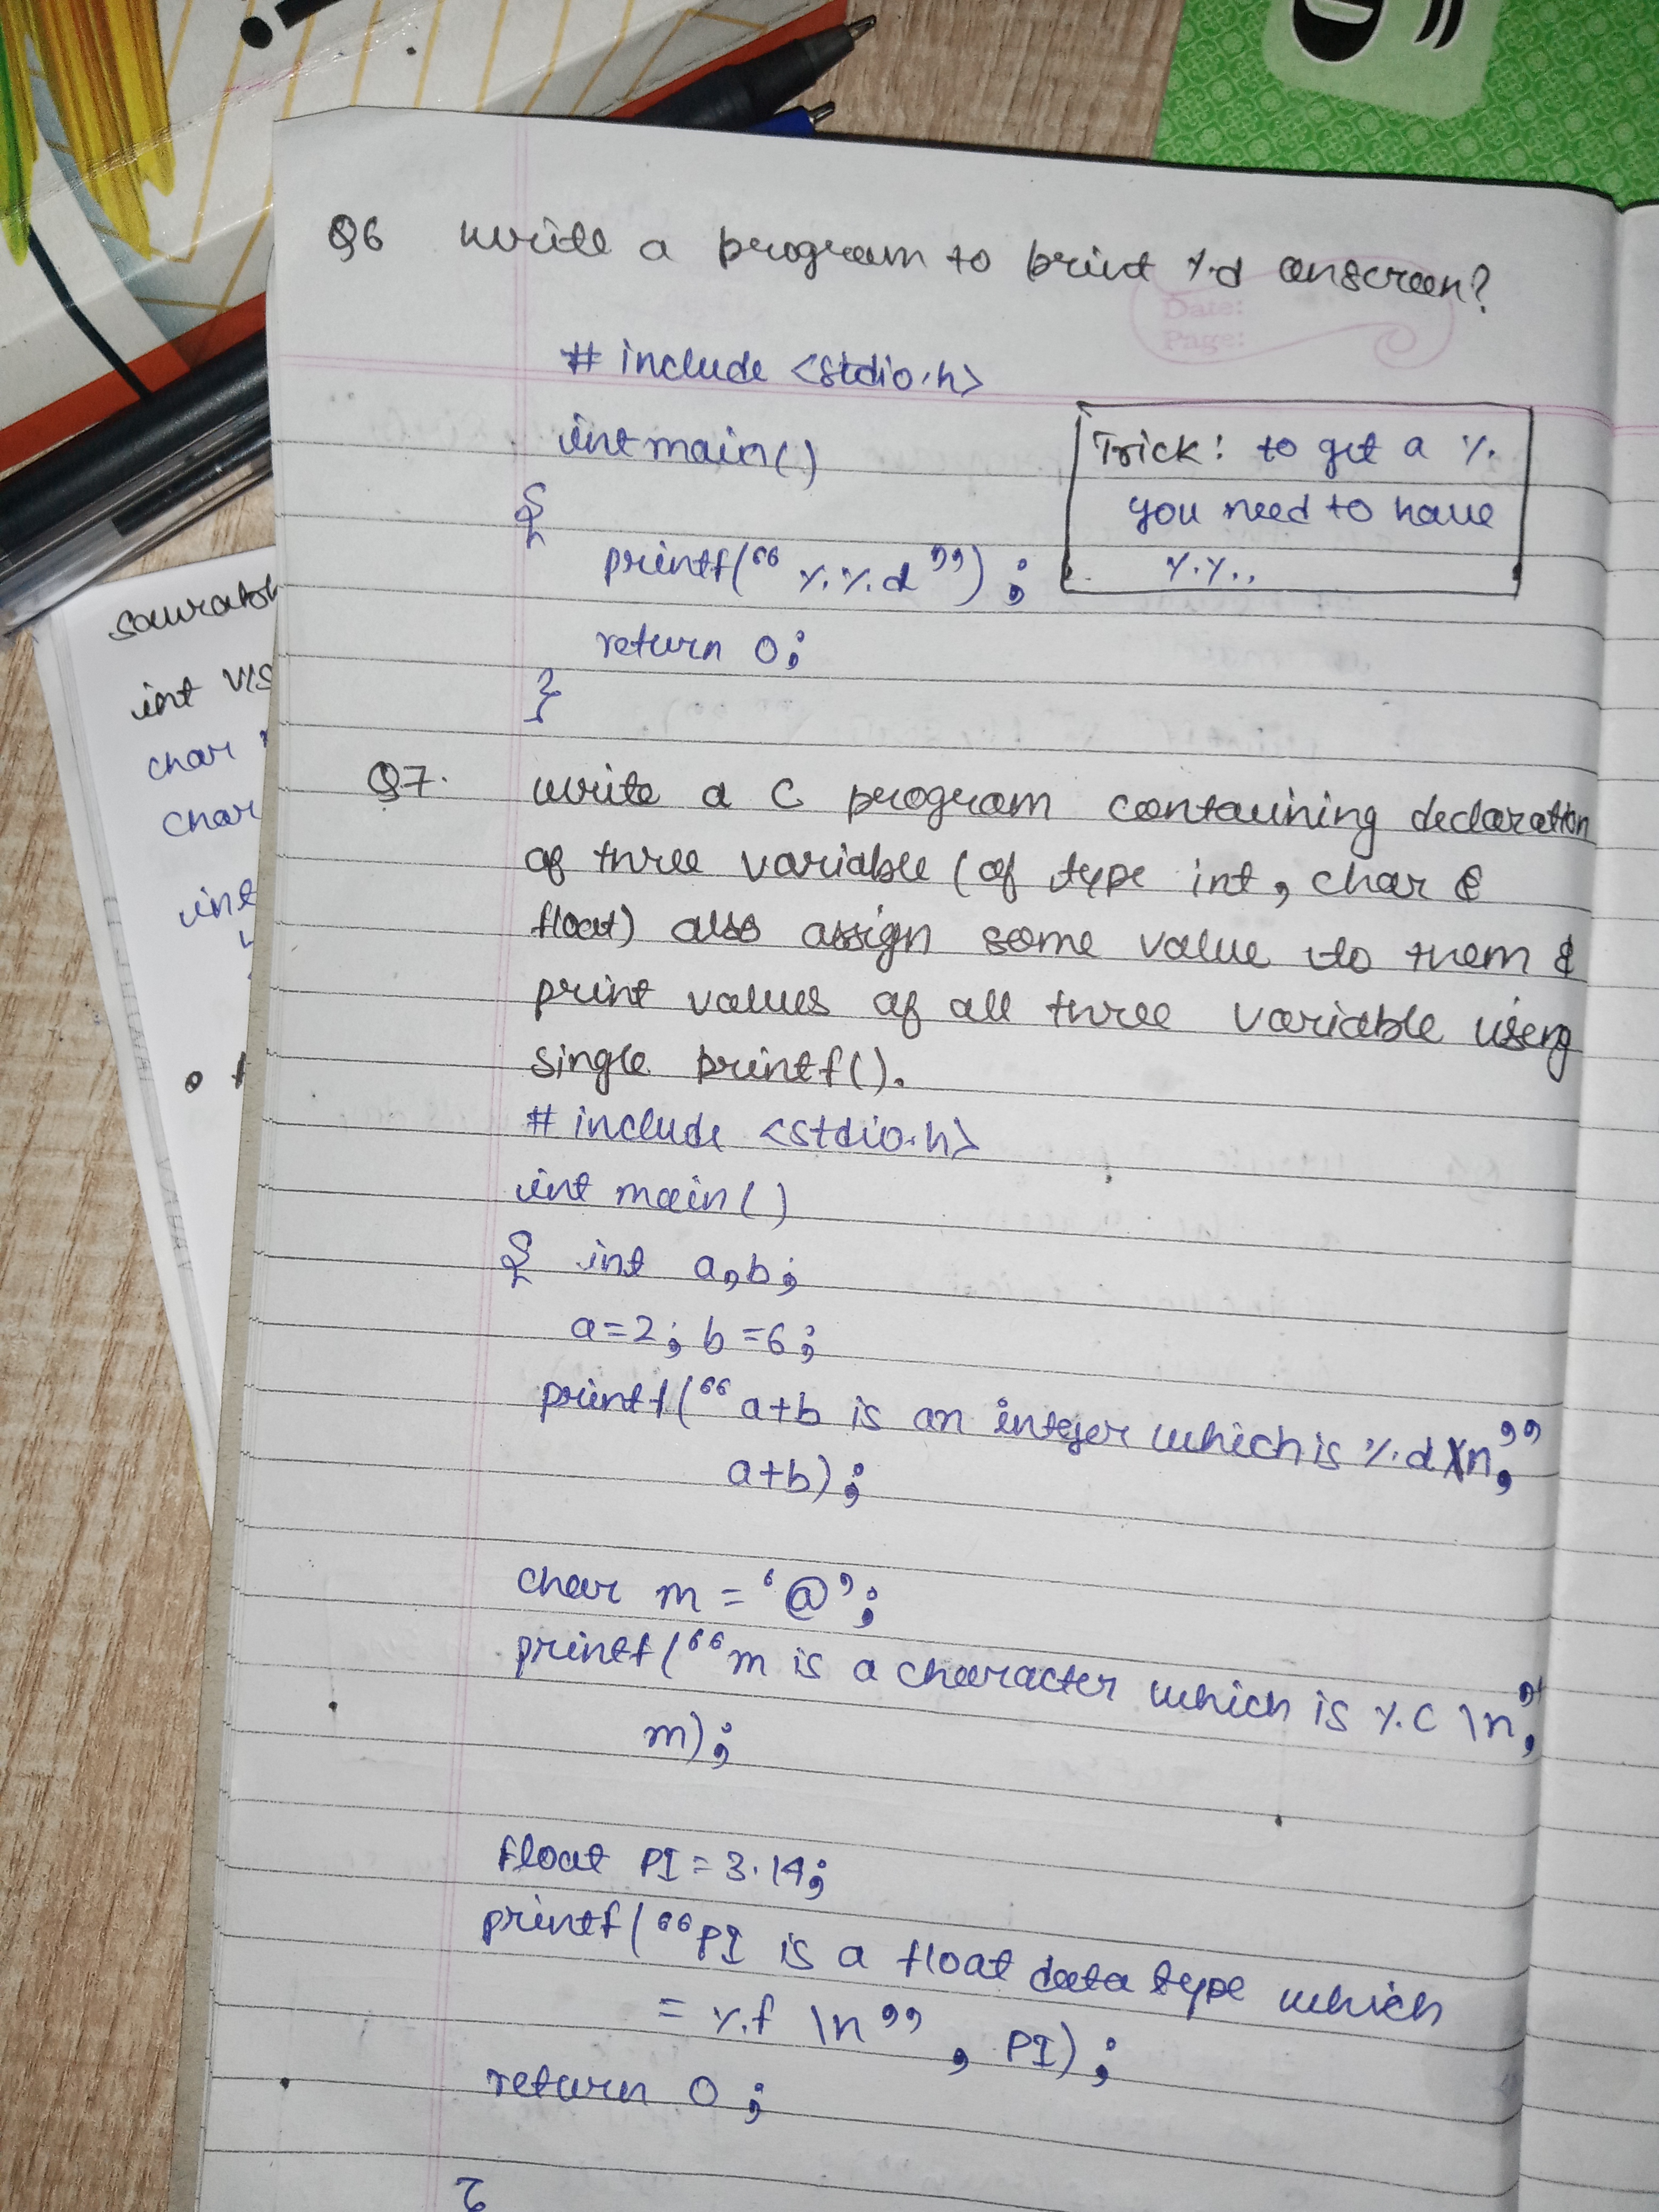 Q6 write a program to print %d onscreen?
Date:
Page:
# include <stdio.h>
int main()
{
printf("%%d");
return 0;
}
Trick: to get a %
you need to have
%%.,
Q7. write a C program containing declaration
of three variable (of type int, char &
float) also assign some value to them &
print values of all three variable using
single printf().
# include <stdio.h>
int main()
{ int a,b;
a=2; b=6;
printf("a+b is an integer which is %d\n",
a+b);
char m = '@';
printf("m is a character which is %c \n",
m);
float PI=3.14;
printf("PI is a float data type which
= %f \n", PI);
return 0;
}
saurabh
int
char
char
int